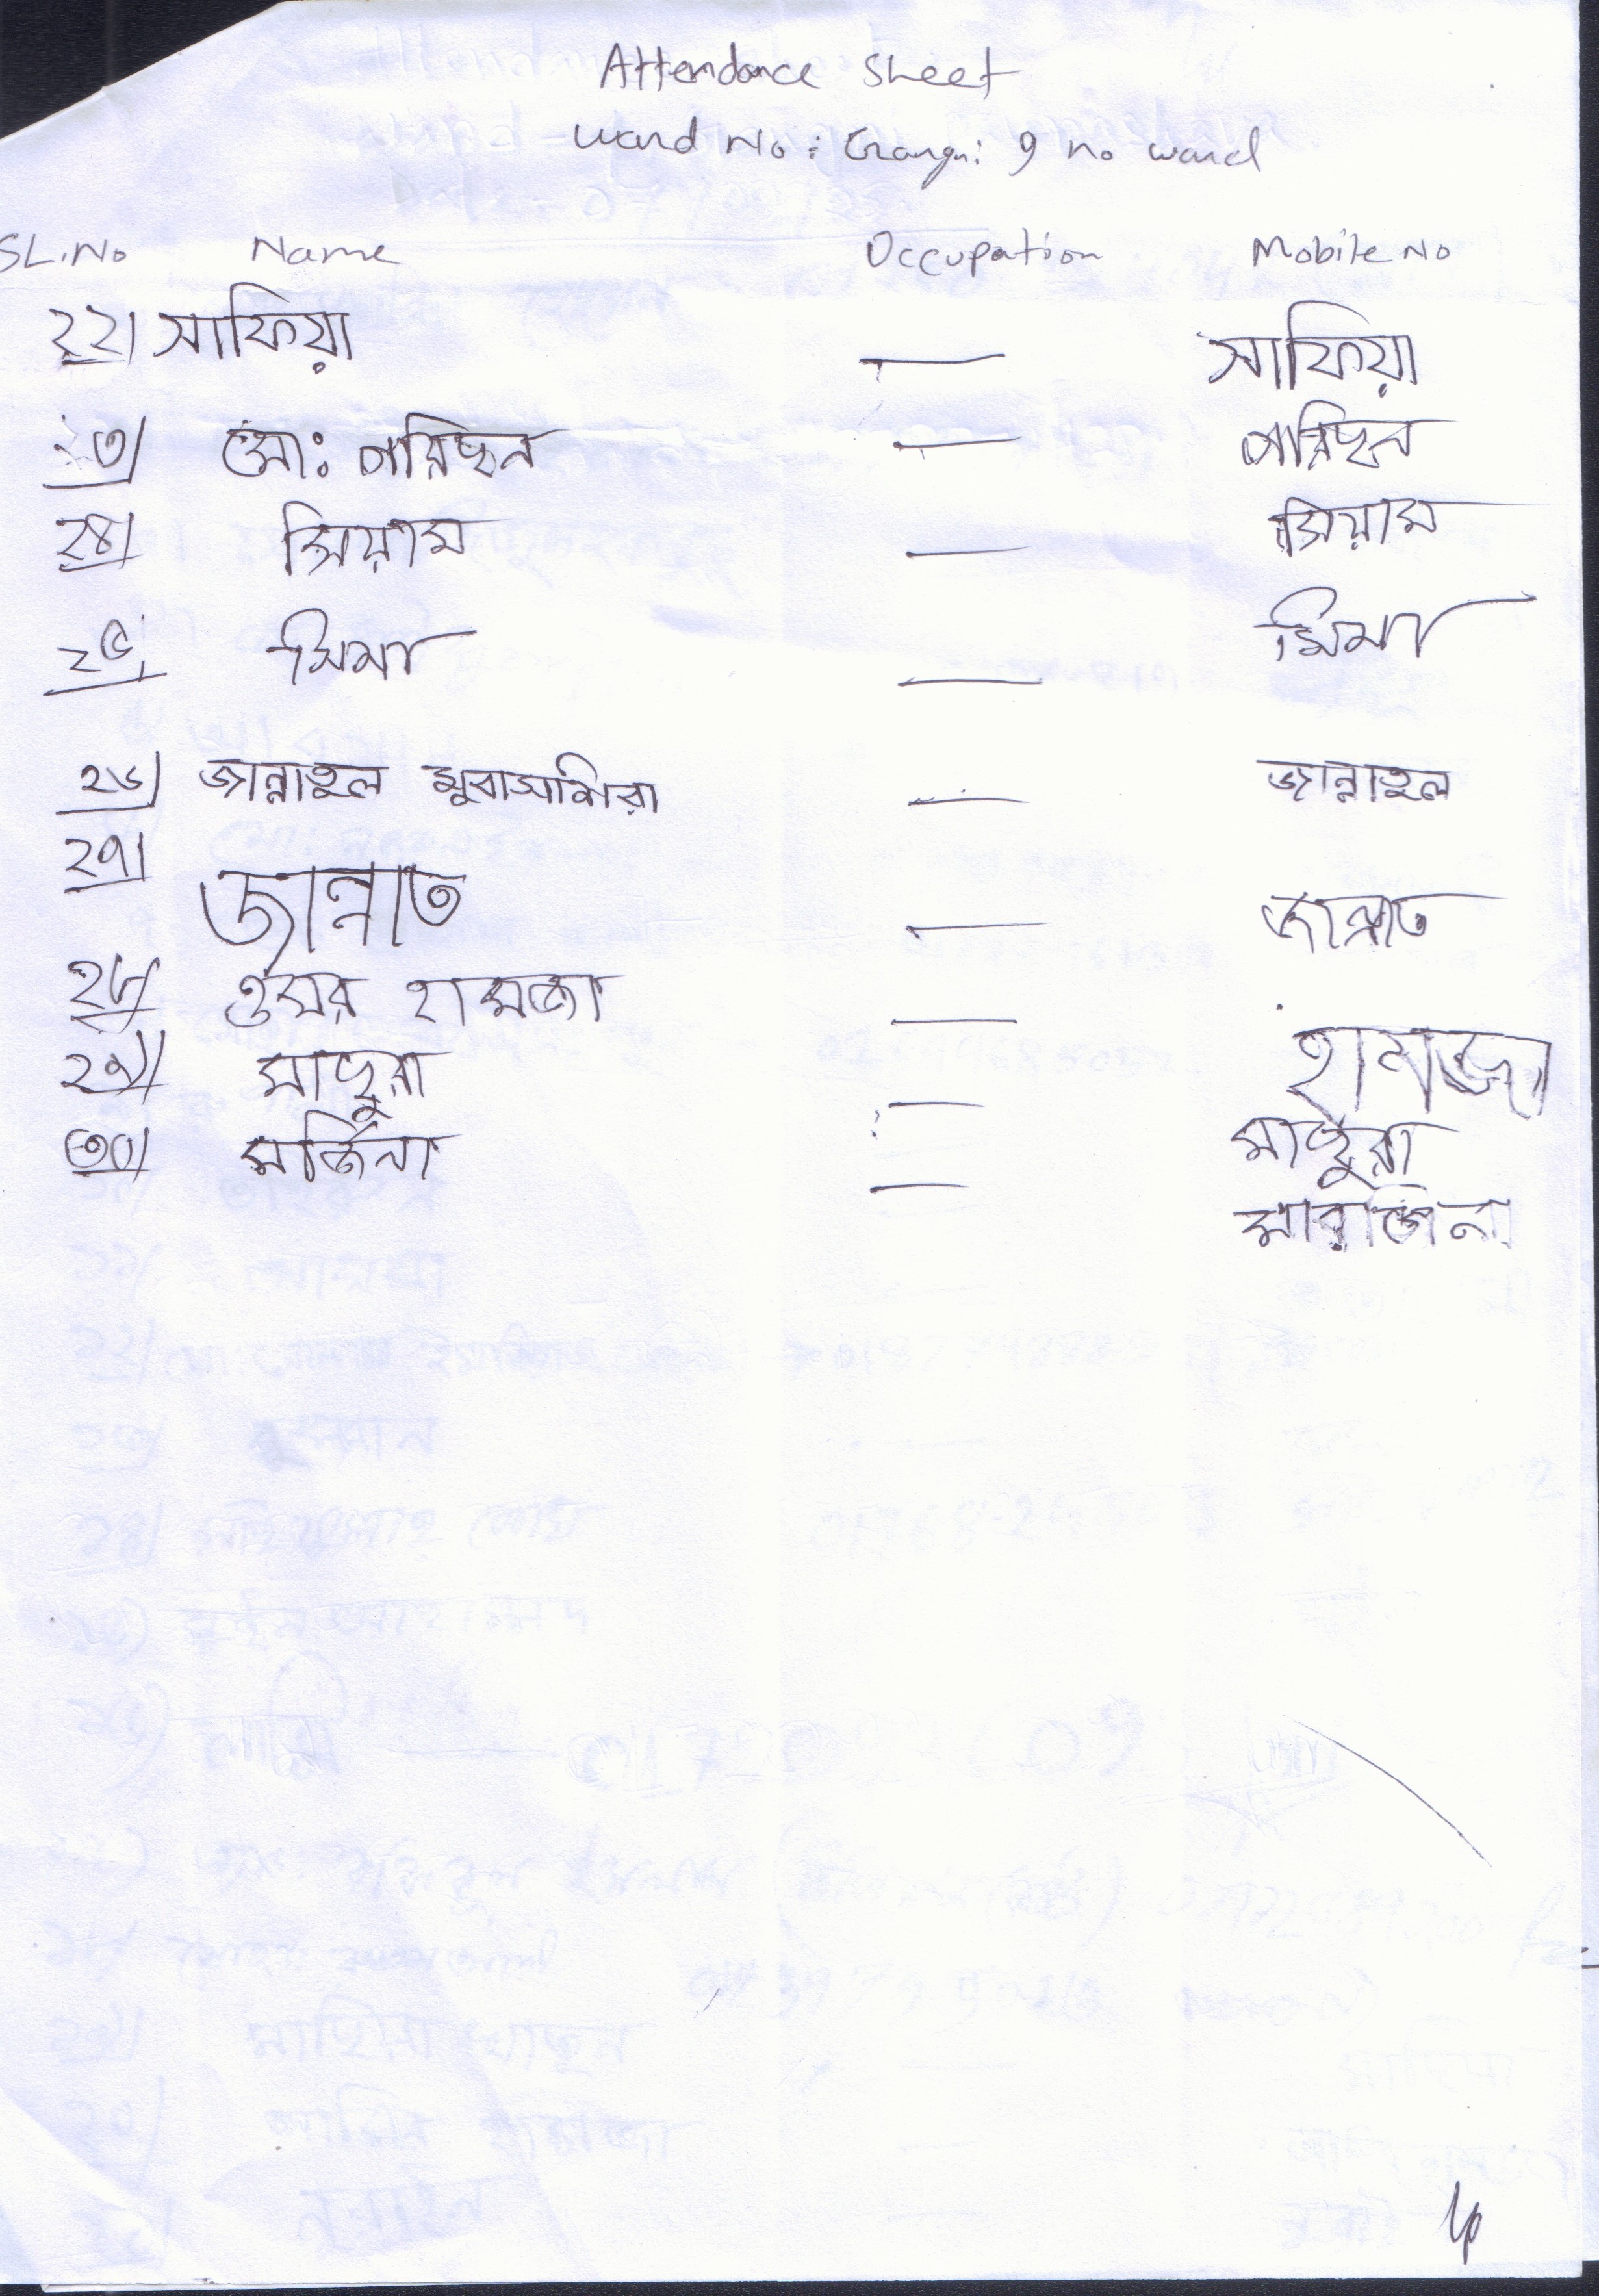 Attendance Sheet
Ward No: Gangni 9 no ward
SL.No Name Occupation Mobile No
২২। সাফিয়া — সাফিয়া
২৩। মোা: পারিছন — পারিছন
২৪। সিয়াম — সিয়াম
২৫। সিমা — সিমা
২৬। জান্নাতুল মুবাসশিরা — জান্নাতুল
২৭। জান্নাত — জান্নাত
২৮। ওমর হামজা — হামজা
২৯। মাছুরা — মাছুরা
৩০। মর্জিনা — মারজিনা